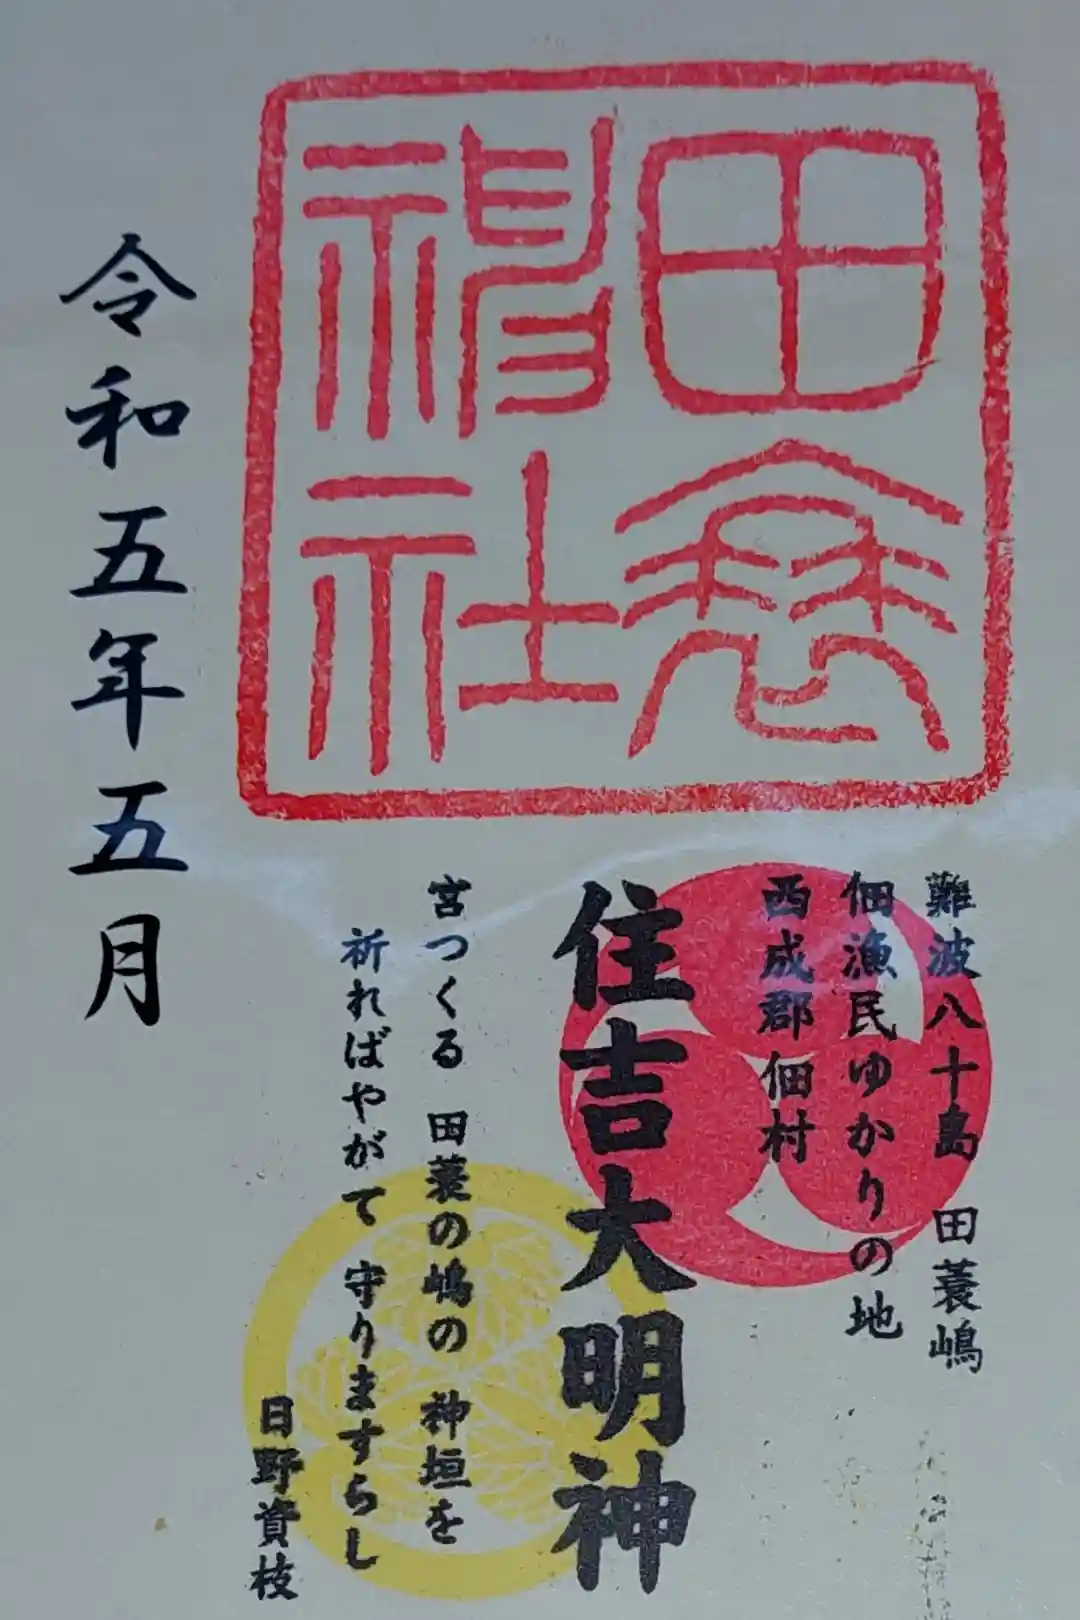 田蓑
神社
難波八十島 田蓑嶋
佃漁民ゆかりの地
西成郡佃村
住吉大明神
宮つくる 田蓑の嶋の 神垣を
祈ればやがて 守りますらし
日野資枝
令和五年五月